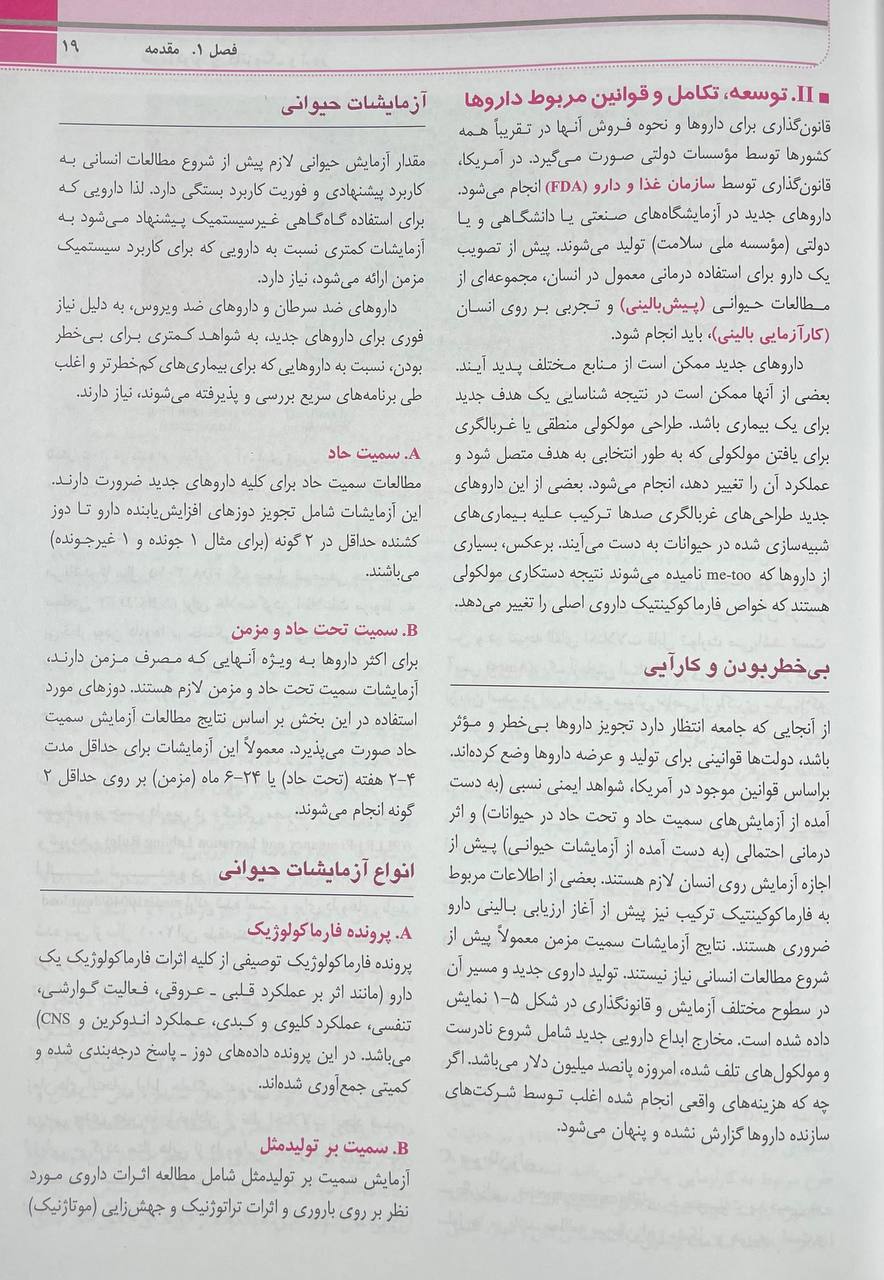 فصل ۱. مقدمه ۱۹
■ II. توسعه، تکامل و قوانین مربوط داروها
قانون‌گذاری برای داروها و نحوه فروش آنها در تقریباً همه
کشورها توسط مؤسسات دولتی صورت می‌گیرد. در آمریکا،
قانون‌گذاری توسط سازمان غذا و دارو (FDA) انجام می‌شود.
داروهای جدید در آزمایشگاه‌های صنعتی یا دانشگاهی و یا
دولتی (مؤسسه ملی سلامت) تولید می‌شوند. پیش از تصویب
یک دارو برای استفاده درمانی معمول در انسان، مجموعه‌ای از
مطالعات حیوانی (پیش‌بالینی) و تجربی بر روی انسان
(کارآزمایی بالینی)، باید انجام شود.
داروهای جدید ممکن است از منابع مختلف پدید آیند.
بعضی از آنها ممکن است در نتیجه شناسایی یک هدف جدید
برای یک بیماری باشد. طراحی مولکولی منطقی یا غربالگری
برای یافتن مولکولی که به طور انتخابی به هدف متصل شود و
عملکرد آن را تغییر دهد، انجام می‌شود. بعضی از این داروهای
جدید طراحی‌های غربالگری صدها ترکیب علیه بیماری‌های
شبیه‌سازی شده در حیوانات به دست می‌آیند. برعکس، بسیاری
از داروها که me-too نامیده می‌شوند نتیجه دستکاری مولکولی
هستند که خواص فارماکوکینتیک داروی اصلی را تغییر می‌دهد.
بی‌خطر بودن و کارآیی
از آنجایی که جامعه انتظار دارد تجویز داروها بی‌خطر و مؤثر
باشد، دولت‌ها قوانینی برای تولید و عرضه داروها وضع کرده‌اند.
براساس قوانین موجود در آمریکا، شواهد ایمنی نسبی (به دست
آمده از آزمایش‌های سمیت حاد و تحت حاد در حیوانات) و اثر
درمانی احتمالی (به دست آمده از آزمایشات حیوانی) پیش از
اجازه آزمایش روی انسان لازم هستند. بعضی از اطلاعات مربوط
به فارماکوکینتیک ترکیب نیز پیش از آغاز ارزیابی بالینی دارو
ضروری هستند. نتایج آزمایشات سمیت مزمن معمولاً پیش از
شروع مطالعات انسانی نیاز نیستند. تولید داروی جدید و مسیر آن
در سطوح مختلف آزمایش و قانونگذاری در شکل ۵-۱ نمایش
داده شده است. مخارج ابداع دارویی جدید شامل شروع نادرست
و مولکول‌های تلف شده، امروزه پانصد میلیون دلار می‌باشد. اگر
چه که هزینه‌های واقعی انجام شده اغلب توسط شرکت‌های
سازنده داروها گزارش نشده و پنهان می‌شود.
آزمایشات حیوانی
مقدار آزمایش حیوانی لازم پیش از شروع مطالعات انسانی به
کاربرد پیشنهادی و فوریت کاربرد بستگی دارد. لذا دارویی که
برای استفاده گاه‌گاهی غیرسیستمیک پیشنهاد می‌شود به
آزمایشات کمتری نسبت به دارویی که برای کاربرد سیستمیک
مزمن ارائه می‌شود، نیاز دارد.
داروهای ضد سرطان و داروهای ضد ویروس، به دلیل نیاز
فوری برای داروهای جدید، به شواهد کمتری برای بی‌خطر
بودن، نسبت به داروهایی که برای بیماری‌های کم‌خطرتر و اغلب
طی برنامه‌های سریع بررسی و پذیرفته می‌شوند، نیاز دارند.
A. سمیت حاد
مطالعات سمیت حاد برای کلیه داروهای جدید ضرورت دارند.
این آزمایشات شامل تجویز دوزهای افزایش‌یابنده دارو تا دوز
کشنده حداقل در ۲ گونه (برای مثال ۱ جونده و ۱ غیرجونده)
می‌باشند.
B. سمیت تحت حاد و مزمن
برای اکثر داروها به ویژه آنهایی که مصرف مزمن دارند،
آزمایشات سمیت تحت حاد و مزمن لازم هستند. دوزهای مورد
استفاده در این بخش بر اساس نتایج مطالعات آزمایش سمیت
حاد صورت می‌پذیرد. معمولاً این آزمایشات برای حداقل مدت
۴-۲ هفته (تحت حاد) یا ۲۴-۶ ماه (مزمن) بر روی حداقل ۲
گونه انجام می‌شوند.
انواع آزمایشات حیوانی
A. پرونده فارماکولوژیک
پرونده فارماکولوژیک توصیفی از کلیه اثرات فارماکولوژیک یک
دارو (مانند اثر بر عملکرد قلبی ـ عروقی، فعالیت گوارشی،
تنفسی، عملکرد کلیوی و کبدی، عملکرد اندوکرین و CNS)
می‌باشد. در این پرونده داده‌های دوز ـ پاسخ درجه‌بندی شده و
کمیتی جمع‌آوری شده‌اند.
B. سمیت بر تولیدمثل
آزمایش سمیت بر تولیدمثل شامل مطالعه اثرات داروی مورد
نظر بر روی باروری و اثرات تراتوژنیک و جهش‌زایی (موتاژنیک)